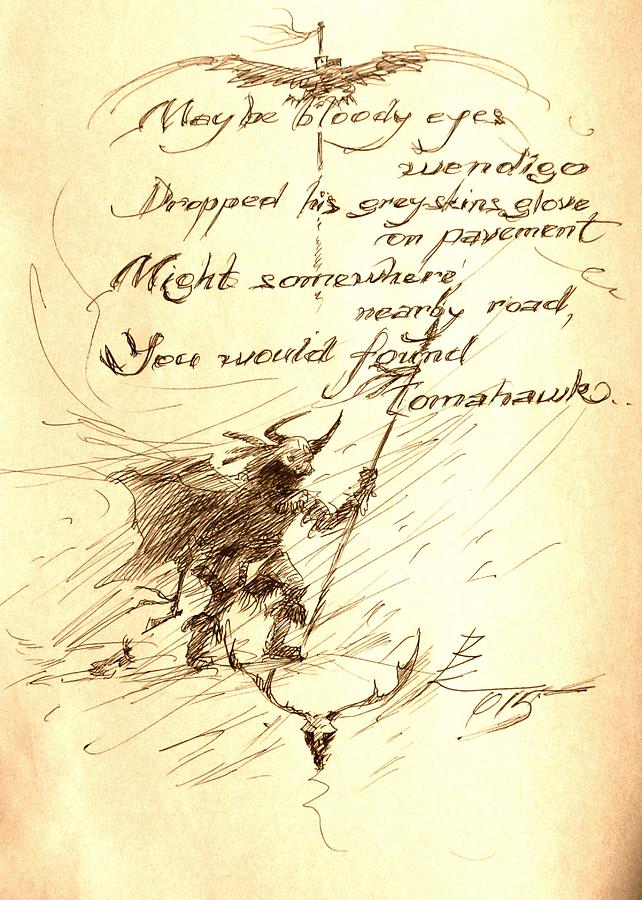 May be bloody eyes
wendigo
Dropped his grey skins glove
on pavement
Might somewhere
nearby road,
You would found
Tomahawk..
015